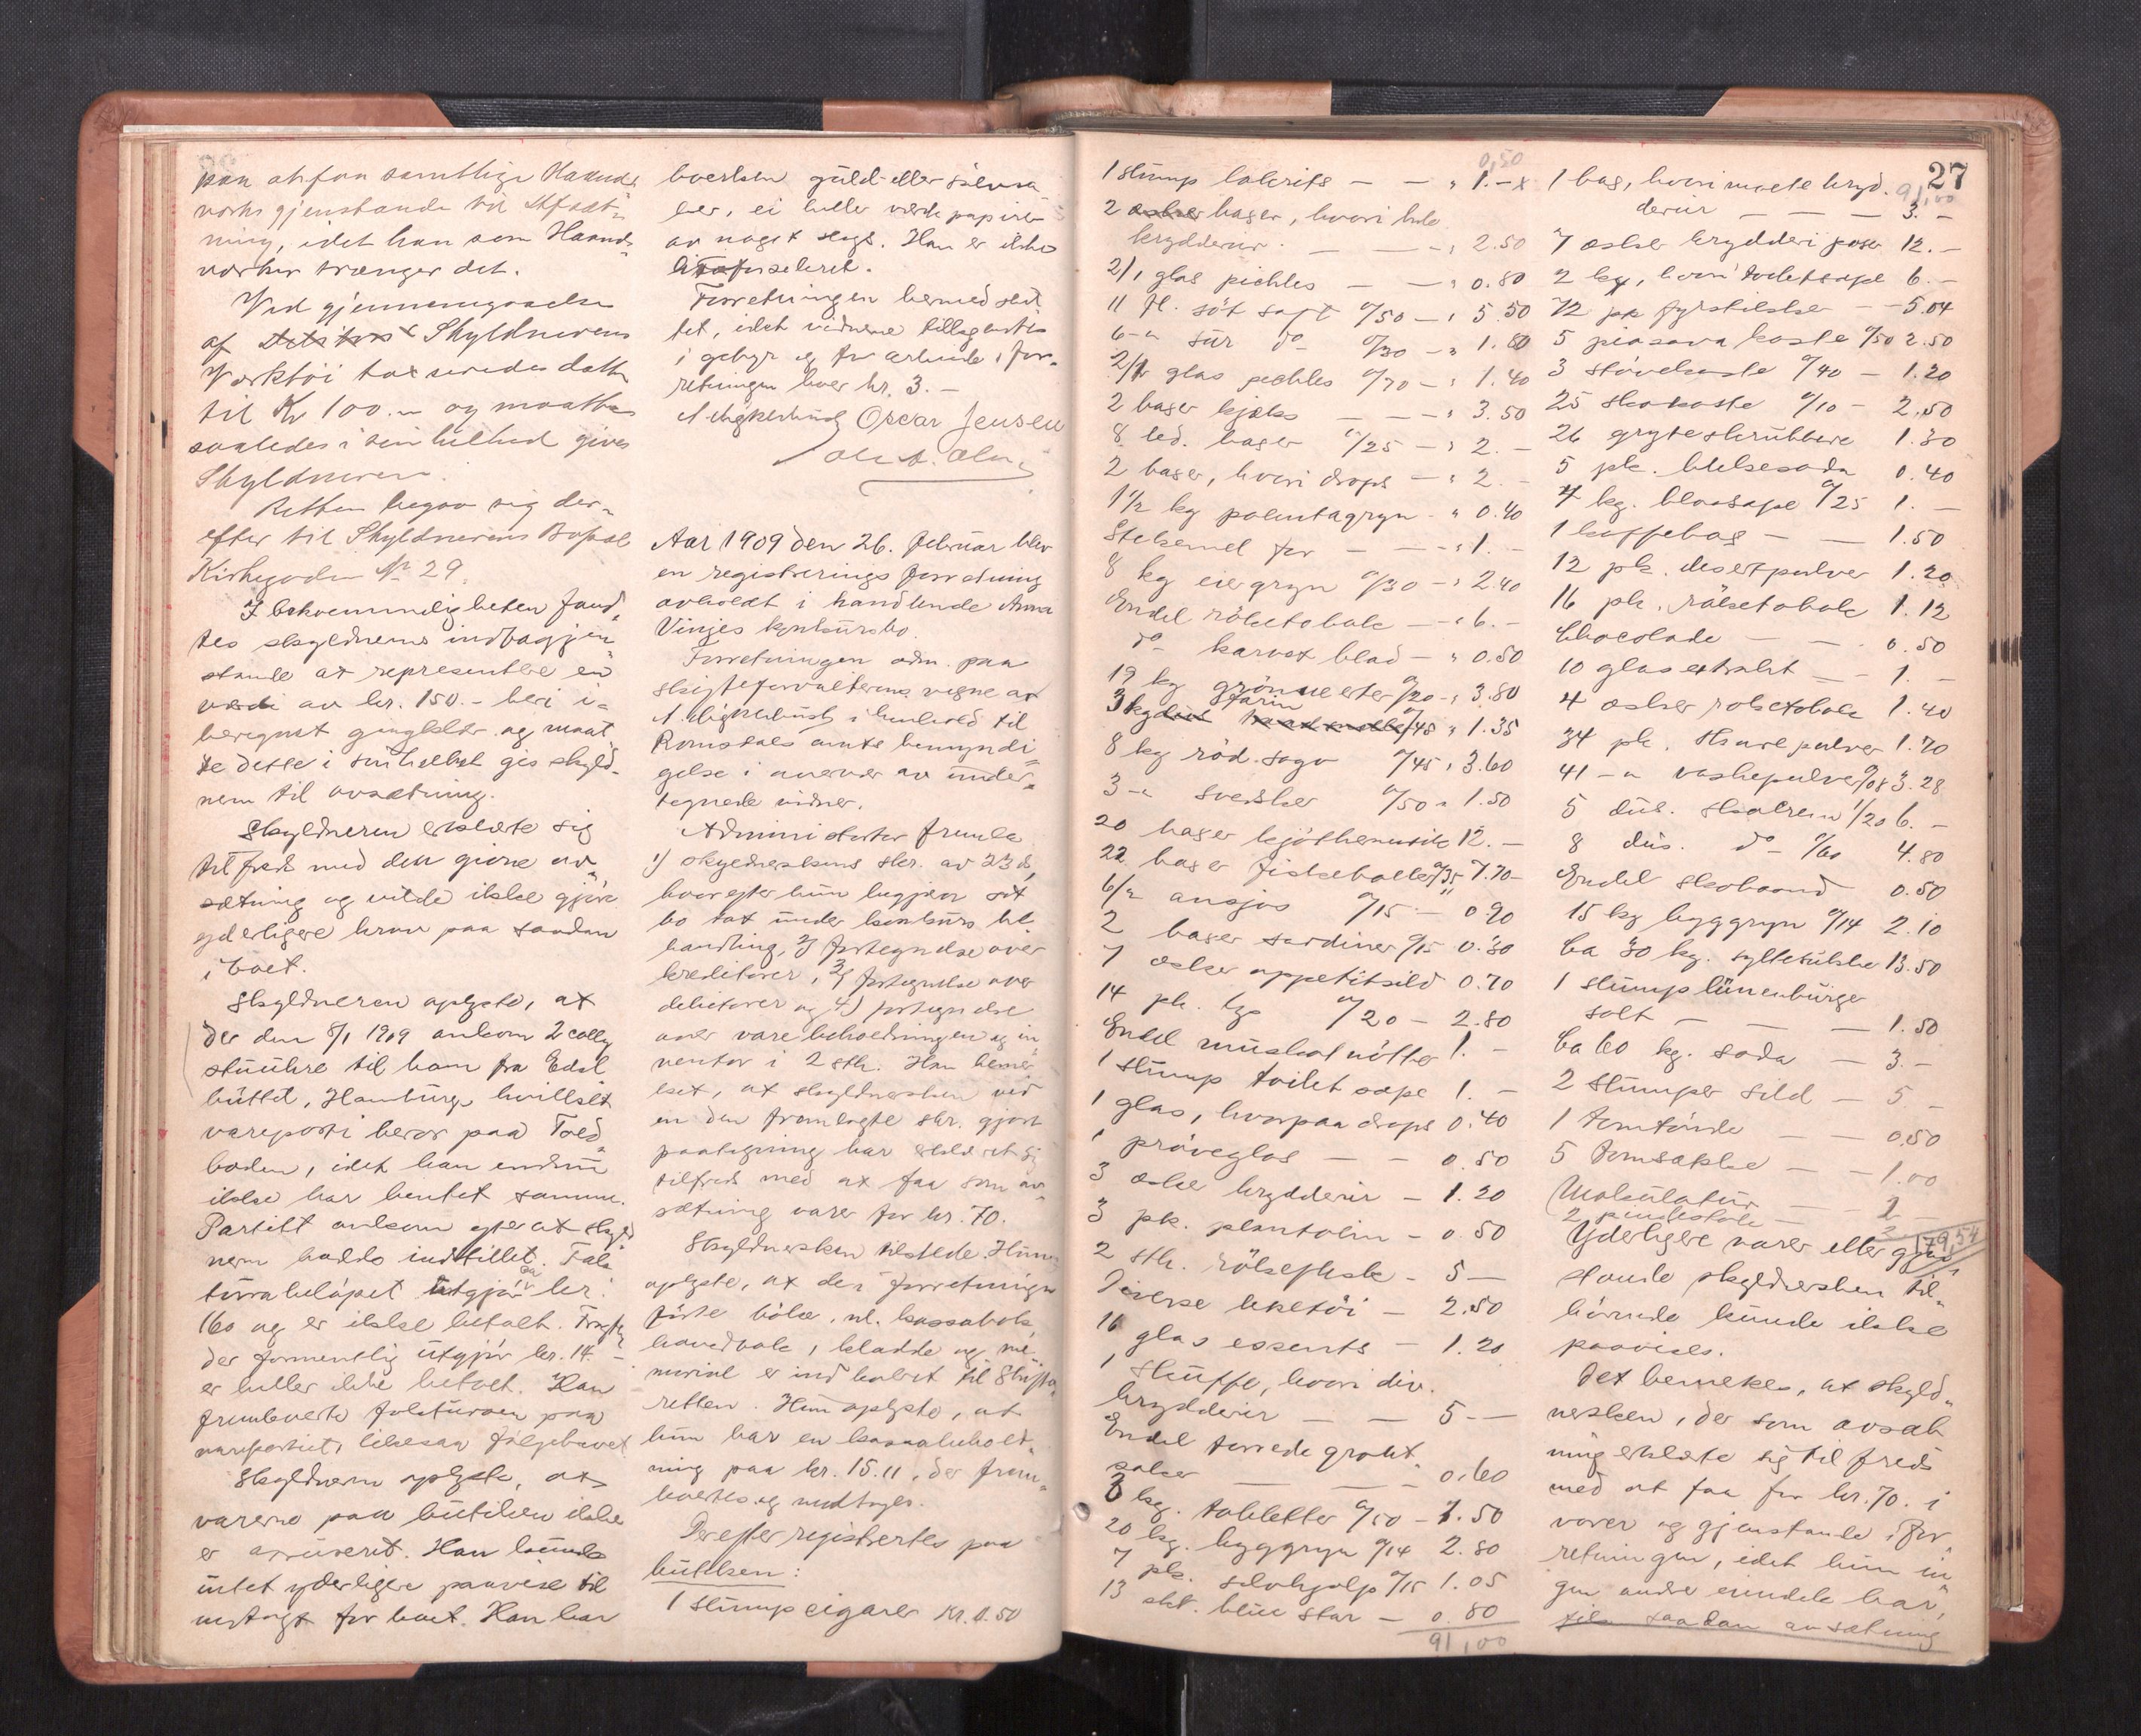 paa at faa samtlige Haand
verks gjenstande til Afsæt-
ning, idet han som Haand-
verker trænger det.
Ved gjennemgaaelse
af Skyldnerens
Verktøi taxeredes dette
til Kr 100.- og maatte
saaledes i sin helhed gives
Skyldneren.
Retten begav sig der-
efter til Skyldnerens Bopæl
Kirkegaden No 29.
I bekvemmeligheten fand-
tes skyldnerens indbogjen-
stande at representere en
værdi av kr. 150.- heri i-
beregnet gangklær og maat
te dette i sin helhet gis skyld-
neren til avsætning.
Skyldneren erklærte sig
tilfreds med den givne av-
sætning og vilde ikke gjøre
yderligere krav paa saadan
i boet.
Skyldneren oplyste, at
der den 8/1 1909 ankom 2 colly
til ham fra
Hamburg, hvilket
vareparti beror paa Told-
boden, idet han endnu
ikke har hentet samme.
Partiet ankom efter at skyld
neren hadde indstillet. Fak-
tura beløpet utgjør ca kr.
160 og er ikke betalt. Fragten
der formentlig utgjør kr. 14 -
er heller ikke betalt. Han
fremleverte fakturaen paa
varepartiet, likesaa følgebrevet
Skyldneren oplyste, at
varerne paa butiken ikke
er assureret. Han kunde
intet yderligere paavise til
indtægt for boet. Han har
hverken guld- eller sølvsa
ker, ei heller værdipapirer
av noget slags. Han er ikke
livsforsikret.
Forretningen hermed slut
tet, idet vidnerne tillagdes
i gebyr og for arbeide i for-
retningen hver kr. 3.-
Oscar Jensen

Aar 1909 den 26. februar blev
en registrerings forretning
avholdt i handlende Anna
Vinjes konkursbo.
Forretningen adm. paa
skifteforvalterens vegne av
i henhold til
Romsdals amts bemyndi
gelse i nærvær av under-
tegnede vidner.
Administrator fremla
1) skyldnerskens skr. av 23 ds,
hvorefter hun begjær sit
bo tat under konkurs be-
handling, 2) fortegnelse over
kreditorer, 3) fortegnelse over
debitorer og 4) fortegnelse
over varebeholdningen og in
ventar i 2 stk. Han bemer
ket, at skyldnersken ved
en den fremlagte skr. gjort
paategning har erklæret sig
tilfreds med at faa som av-
sætning varer for kr. 70.
Skyldnersken tilstede. Hun
oplyste, at der i forretningen
førte bøker, nl. kassabok,
hovedbok, kladde og me
morial er indleveret til Skifte-
retten. Hun oplyste, at
hun har en kassabehold-
ning paa kr. 15.11, der frem-
levertes og modtoges.
Derefter registrertes paa
butikken:
1 stump cigarer kr. 0.50
27
0,50
1 stump lakrits — — " 1.-x
2 bager, hvori hele
krydderier — — " 2.50
2/1 glas pickles — — " 0.80
11 fl. søt saft a/50 — " 5.50
6 -" sur do a/30 — " 1.80
2/1 glas pickles a/70 — " 1.40
2 bager kjæks — — " 3.50
8 led. bager a/25 — " 2.-
2 bager, hvori drops — " 2.-
1 1/2 kg polentagryn - " 0.40
Stekemel for — — " 1.-
8 kg eiergryn a/30 — " 2.40
Endel røketobak — " 6.-
do karvet blad — " 0.50
19 kg grønne erter a/20 - " 3.80
3 kg farin a/45 " 1.35
8 kg rød. sago a/45 " 3.60
3 -" svedsker a/50 " 1.50
20 bager kjøthermetik 12.-
22 bager fiskeboller a/35 7.70
6/2 ansjos a/15 — 0.90
2 bager sardiner a/15 0.30
7 æsker appetitsild 0.70
14 pk. lys a/20 — 2.80
Endel muskatnøtter 1.-
1 stump toiletsæpe 1.-
1 glas, hvorpaa drops 0.40
1 prøveglas — — 0.50
3 æsker krydderier — 1.20
3 pk. plantolin — 0.50
2 stk. røkeflesk — 5 —
Diverse leketøi — 2.50
16 glas essents — 1.20
1 skuffe, hvori div.
krydderier — — 5 —
Endel tørrede grønt-
saker — — 0.60
3 kg. tabletter a/50 — 1.50
20 kg. byggryn a/14 2.80
7 pk. selvhjælp a/15 1.05
13 skt. blue star — 0.80
91,00
91,00
1 bag, hvori malte kryd-
derier — — — 3.-
7 æsker krydderi poser 12.-
2 kg, hvori toiletsæpe 6.-
72 pk fyrstikker — 5.04
5 piasava koste a/50 2.50
3 støvekoste a/40 — 1.20
25 skokoste a/10 — 2.50
26 gryteskrubbere 1.30
5 pk. blekesoda 0.40
4 kg. blaasæpe a/25 1.-
1 kaffebag — — 1.50
12 pk. desertpulver 1.20
16 pk. røketobak 1.12
Chocolade — — 0.50
10 glas extrakt — 1.-
4 æsker røketobak 1.40
34 pk. skurepulver 1.70
41 -" vaskepulver a/08 3.28
5 dus. skoreim 1/20 6.-
8 dus. do a/60 4.80
Endel skobaand 0.50
15 kg byggryn a/14 2.10
ca 30 kg. syltesukker 13.50
1 stump lüneburger
salt — — — 1.50
ca 60 kg. soda — 3.-
2 stumper sild — 5 -
1 tomtønde — — 0.50
5 tomsække — — 1.00
Makulatur — — 2
2 pindestole — 3
179,54
Yderligere varer eller gjen
stande skyldnersken til-
hørende kunde ikke
paavises.
Det bemerkes, at skyld-
nersken, der som avsæt
ning erklærte sig tilfreds
med at faa for kr. 70. i
varer og gjenstande i for-
retningen, idet hun in
gen andre eiendele har,
saadan avsætning